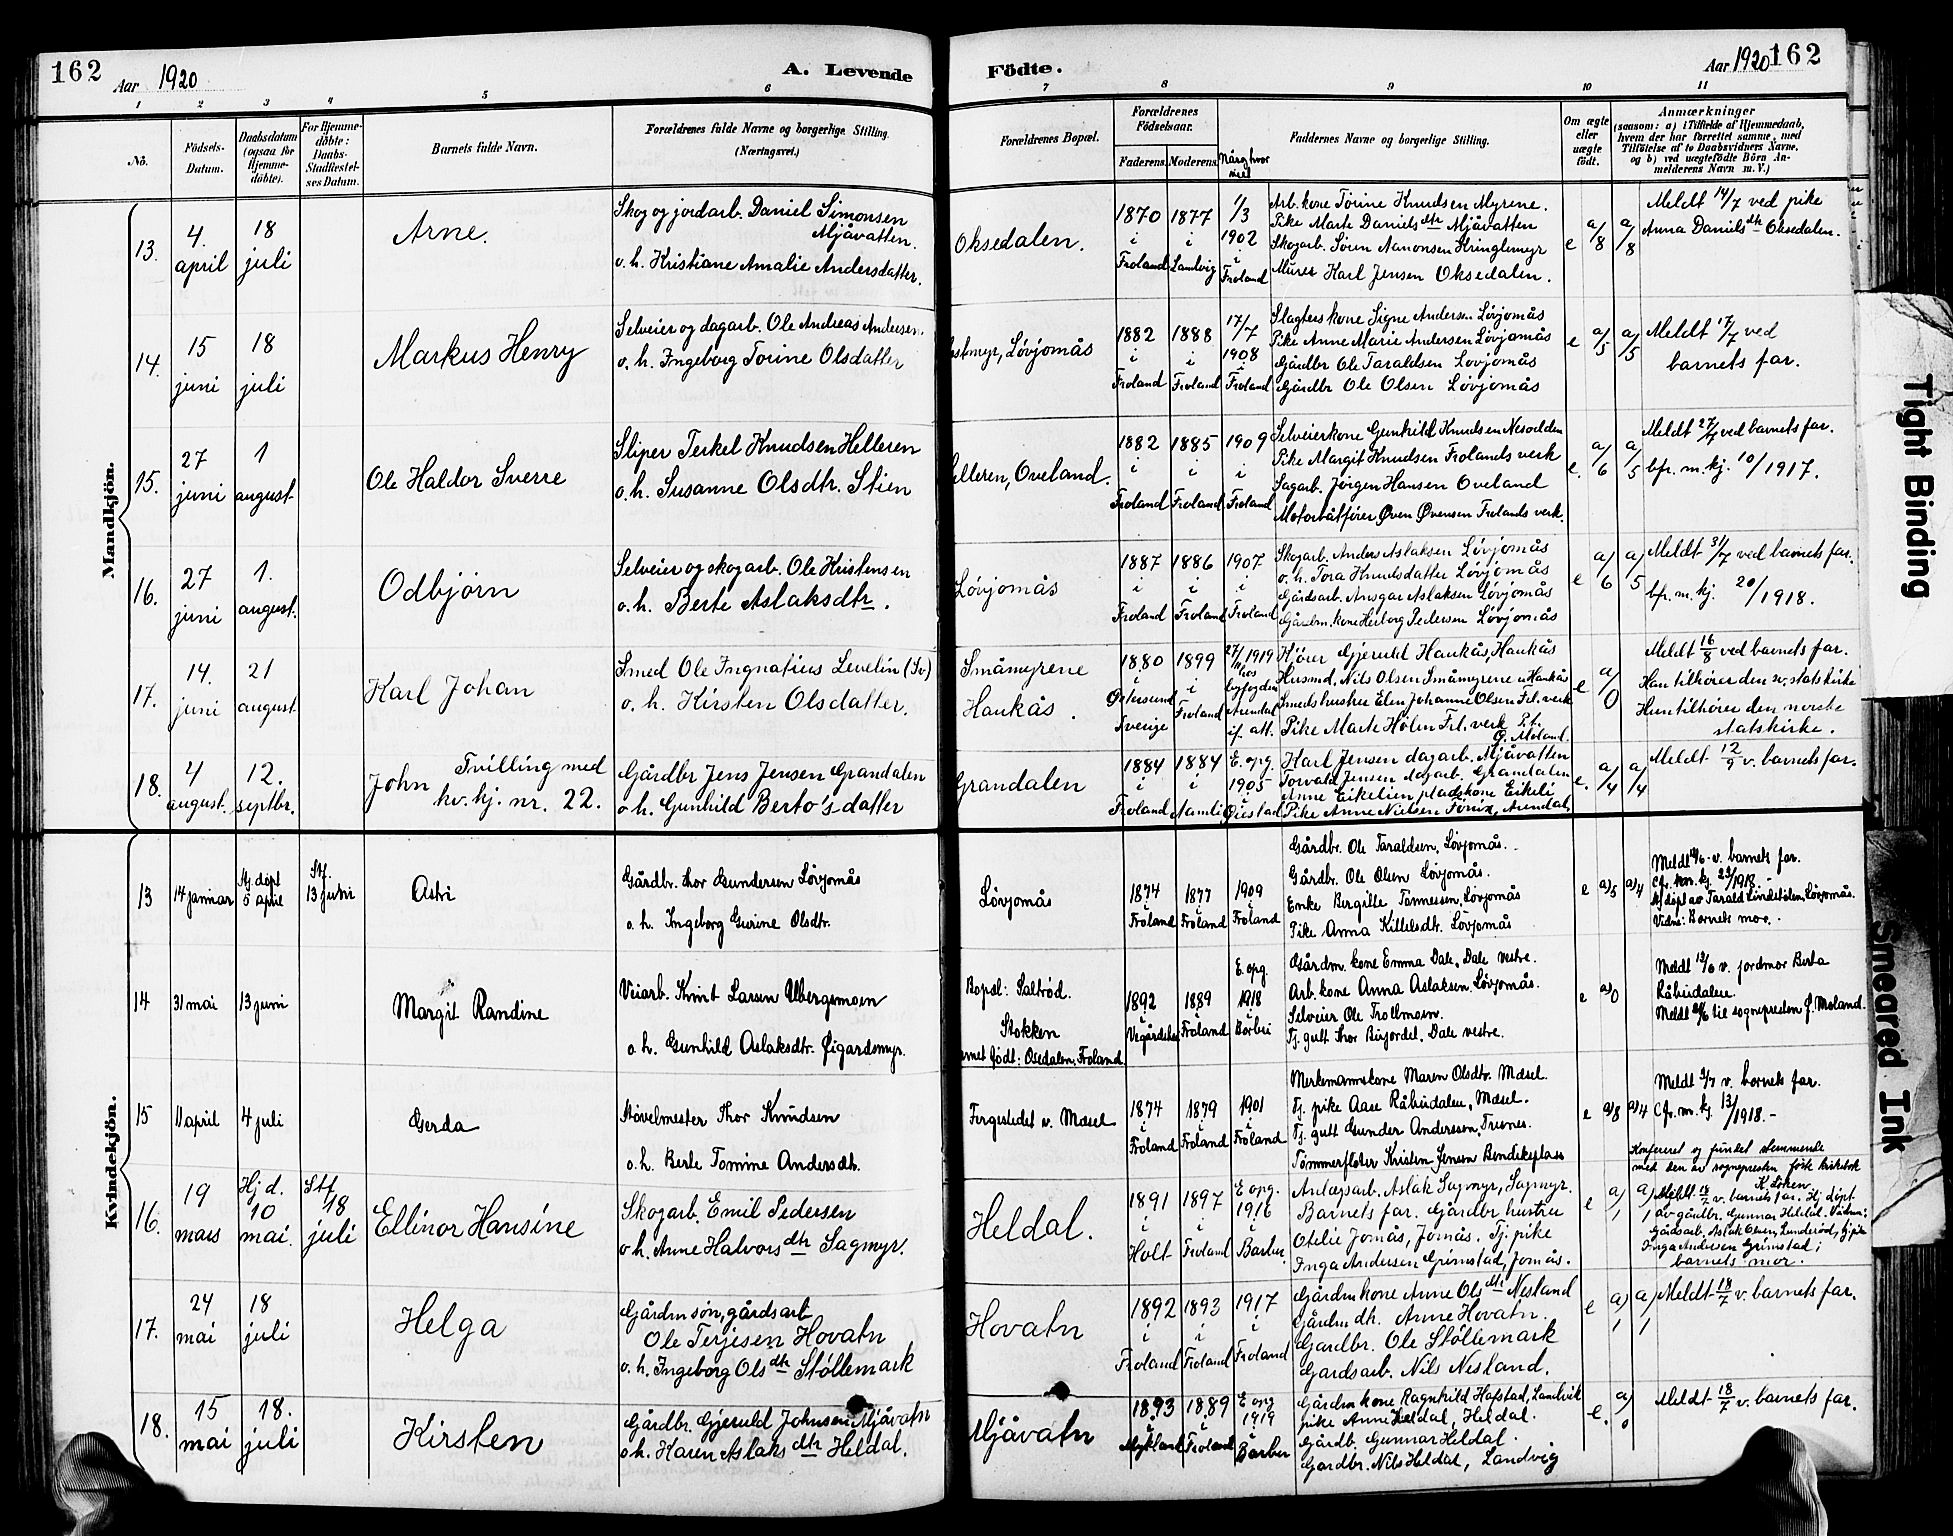 162
Aar 1920
A. Levende
Födte.
Aar 1920
162
1 2 3 4 5 6 7 8 9 10 11
No.
Födsels-Datum.
Daabsdatum (ogsaa for Hjemme-döbte).
For Hjemme-döbte: Daabs-Stadfæstel-ses Datum.
Barnets fulde Navn.
Forældrenes fulde Navne og borgerlige Stilling. (Næringsvei.)
Forældrenes Bopæl.
Forældrenes Födselsaar.
Faderens. Moderens.
Når og hvor viet
Faddernes Navne og borgerlige Stilling.
Om ægte eller uægte födt.
Anmærkninger
(saasom: a) i Tilfælde af Hjemmedaab, hvem der har forrettet samme, med Tilföielse af to Daabsvidners Navne, og b) ved uægtefödte Börn An-melderens Navn m. V.)
Mandkjön.
13. 4. april
18 juli
Arne.
Skog og jordarb. Daniel Simonsen
Mjåvatten.
o. h. Kristiane Amalie Andersdatter.
Oksedalen.
1870 i Froland
1877 i Landvig
1/3 1902 i Froland
Arb. kone Torine Knudsen Myrene.
Pike Marte Danielsdtr Mjåvatten
Skogarb. Søren Aanonsen Kringlemyr
Murer Karl Jensen Oksedalen.
e a/8 a/8
Meldt 14/7 ved pike
Anna Danielsdtr Oksedalen.
14. 15 juni
18 juli
Markus Henry
Selveier og dagarb. Ole Andreas Andersen.
o. h. Ingeborg Torine Olsdatter
stmyr, Løvjomås
1882 i Froland
1888 i Froland
17/7 1908 i Froland
Slagters kone Signe Andersen Løvjomås
Pike Anne Marie Andersen Løvjomås
Gårdbr Ole Taraldsen Løvjomås
Gårdbr Ole Olsen Løvjomås
e a/5 a/5
Meldt 17/7 ved
barnets far.
15. 27 juni
1 august
Ole Haldor Sverre
Sliper Terkel Knudsen Helleren
o. h. Susanne Olsdtr. Stien
elleren, Oveland.
1882 i Froland
1885 i Froland
1909 i Froland
Selveierkone Gunhild Knudsen Nesodden
Pike Margit Knudsen Frolands verk
Sagarb. Jørgen Hansen Oveland
Motorbåtfører Øven Øvensen Frolands verk.
e. a/6 a/5
Meldt 27/7 ved barnets far.
bfr. m. kj. 10/1917.
16. 27 juni
1. august.
Odbjørn
Selveier og skogarb. Ole Kristensen
o. h. Berte Aslaksdtr.
Løvjomås
1887 i Froland
1886 i Froland
1907 i Froland
Skogarb. Anders Aslaksen Løvjomås
o. h. Tora Knudsdatter Løvjomås
Gårdsarb. Ansgar Aslaksen Løvjomås
Gårdm. kone Herborg Pedersen Løvjomås
e a/6 a/5
Meldt 31/7 ved barnets far.
bfr. m. kj. 20/1918.
17. 14. juni
21 august
Karl Johan
Smed Ole Ingnatius Levelin (Sv)
o. h. Kirsten Olsdatter.
Småmyrene
Haukås.
1880 i Østersund Sverige
1899 i Froland
1919 hos byfogden Arendal if. att.
Gjeruld Haukås, Haukås
Husmd. Nils Olsen Småmyrene u Haukås
Smeds hustru Elen Johanne Olsen Frl. verk
Pike Marte Holen Frl. verk P.t.
Ø. Moland.
e a/0
Meldt 16/8 ved barnets far.
Han tilhører den sv. statskirke
Hun tilhører den norske
statskirke.
18. 4 august.
12. septbr.
John Tvilling med
kv. kj. nr. 22.
Gårdbr Jens Jensen Grandalen
o. h. Gunhild Berto's-datter
Grandalen
1884 i Froland
1884 i Aamli
E. opg. 1905 i Øiestad
Karl Jensen dagarb. Mjåvatten
Torvald Jensen dagarb. Grandalen
Anne Eikelien pladskone Eikeli
Pike Anne Nielsen Fönix, Arendal
e. a/4 a/4
Meldt 12/9 v. barnets far.
Kvindekjön.
13 14 januar
Hj. døpt 5 april
Stf. 13 juni
Astri
Gårdbr. Thor Gundersen Løvjomås
o. h. Ingeborg Gurine Olsdtr.
Løvjomås
1874 i Froland
1877 i Froland
1909 i Froland
Gårdbr. Ole Taraldsen, Løvjomås.
Gårdbr. Ole Olsen Løvjomås.
Enke Bergitte Tønnessen, Løvjomås
Pike Anna Killelsdtr. Løvjomås
e a/5 a/4
Meldt v. barnets far.
Hj døpt av Tarald Lindstølen, Løvjomås.
Vidne: Barnets mor.
14 31 mai
13 juni
Margit Randine
Veiarb. Knut Larsen Ulbergsmoen
o. h. Gunhild Aslaksdtr. Øigardsmyr.
Bopæl: Saltrød.
Stokken
rnet født: Osedalen, Froland
1892 i Vegårdshei
1889 i Froland
E. opg. 1918 i Borbu
Gårdm. kone Emma Dale, Dale vestre.
Arb. kone Anna Aslaksen, Løvjomås.
Selveier Ole Trollmoen.
Tj. gutt Thor Bujordet, Dale vestre.
e a/0
Meldt 12/6 v. jordmor Berta
Råbudalen.
Meldt til sognepresten Ø. Moland.
15 11 april
4 juli
Gerda
Støvelmester Thor Knudsen
o. h. Berte Tomine Andersdtr.
Fergestedet v. Mæsel
1874 i Froland
1879 i Froland
1901 i Froland
Merkemannskone Maren Olsdtr. Mæsel.
Tj. pike Aase Råbudalen, Mæsel.
Tj. gutt Gunder Anderssen, Trevnes.
Tømmerfløter Kristen Jensen Bendiksplass
e a/8 a/4
Meldt 3/7 v. barnets far.
Cfr. m. kj. 13/1918.-
Konfereret og fundet stemmende
med den av sognepresten førte kirkebok
K. Loken
16. 19 mars
Hj d. 10 mai.
Stf 18 juli
Ellinor Hansine
Skogarb. Emil Pedersen
o. h. Anne Halvorsdtr Sagmyr.
Heldal.
1891 i Holt
1897 i Froland
E opg. 1916 i Barbu
Anlægsarb. Aslak Sagmyr, Sagmyr.
Barnets far. Gårdbr hustru
Otelie Jomås, Jomås. Tj. pike
Inga Andersen Grimstad, Jomås.
e a/1 a/1
Meldt 18/7 v. barnets far. Hj døpt
av gårdbr. Gunnar Heldal. Vidner:
Gårdsarb. Aslak Olsen, Lunderød, tj. pike
Inga Andersen Grimstad;
barnets mor.
17. 24 mai
18 juli
Helga
Gårdm søn, gårdsarb
Ole Terjesen Hovatn
o. h. Ingeborg Olsdtr Støllemark
Hovatn
1892 i Froland
1893 i Froland
1917 i Froland
Gårdm kone Anne Olsdtr Nesland
Gårdm dtr. Anne Hovatn.
Gårdbr. Ole Støllemark
Gårdsarb. Nils Nesland.
e a/1 a/1
Meldt 18/7 v. barnets far.
18. 15 mai
18. juli
Kirsten
Gårdbr. Gjeruld Johnsen Mjåvatn
o. h. Karen Aslaksdtr Heldal.
Mjåvatn
1893 i Mykland
1889 i Froland
E opg 1919 i Barbu
Gårdm kone Ragnhild Hafstad, Landvik
pike Anne Heldal, Heldal.
Gårdb. Gunnar Heldal.
Gårdbr. Nils Heldal, Landvig
e. a/0
Meldt 18/7 v. barnets far.
Tight Binding
Smeared Ink